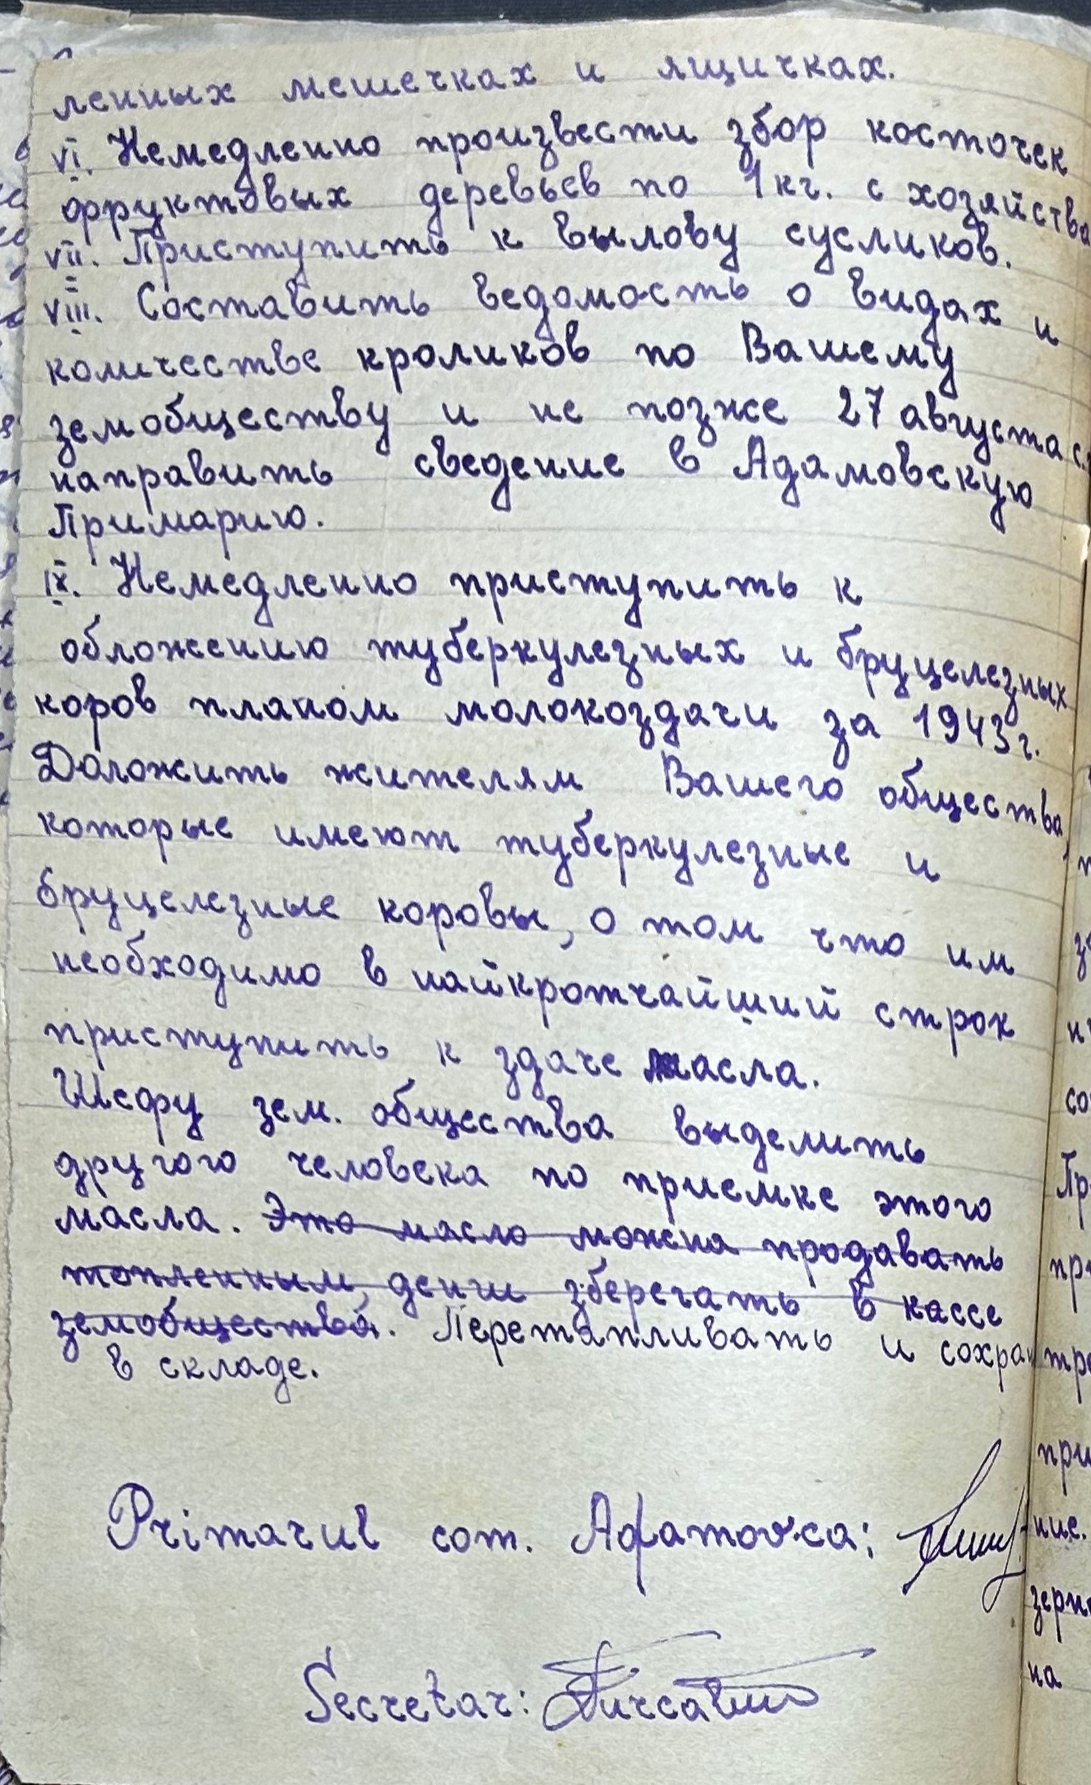 ленных мешечках и ящичках.
VI. Немедленно произвести збор косточек
фруктовых деревьев по 1 кг. с хозяйства
VII. Приступить к вылову сусликов.
VIII. Составить ведомость о видах и
количестве кроликов по Вашему
земобществу и не позже 27 августа с
направить сведение в Адамовскую
Примарию.
IX. Немедленно приступить к
обложению туберкулезных и бруцелезных
коров планом молокоздачи за 1943 г.
Доложить жителям Вашего общества
которые имеют туберкулезные и
бруцелезные коровы, о том что им
необходимо в найкротчайший строк
приступить к здаче масла.
Шефу зем. общества выделить
другого человека по приемке этого
масла. Это масло можна продавать
топленным, денги зберегать в кассе
земобщества. Перетапливать и сохран
в складе.
Primarul com. Adamovca:
Secretar: